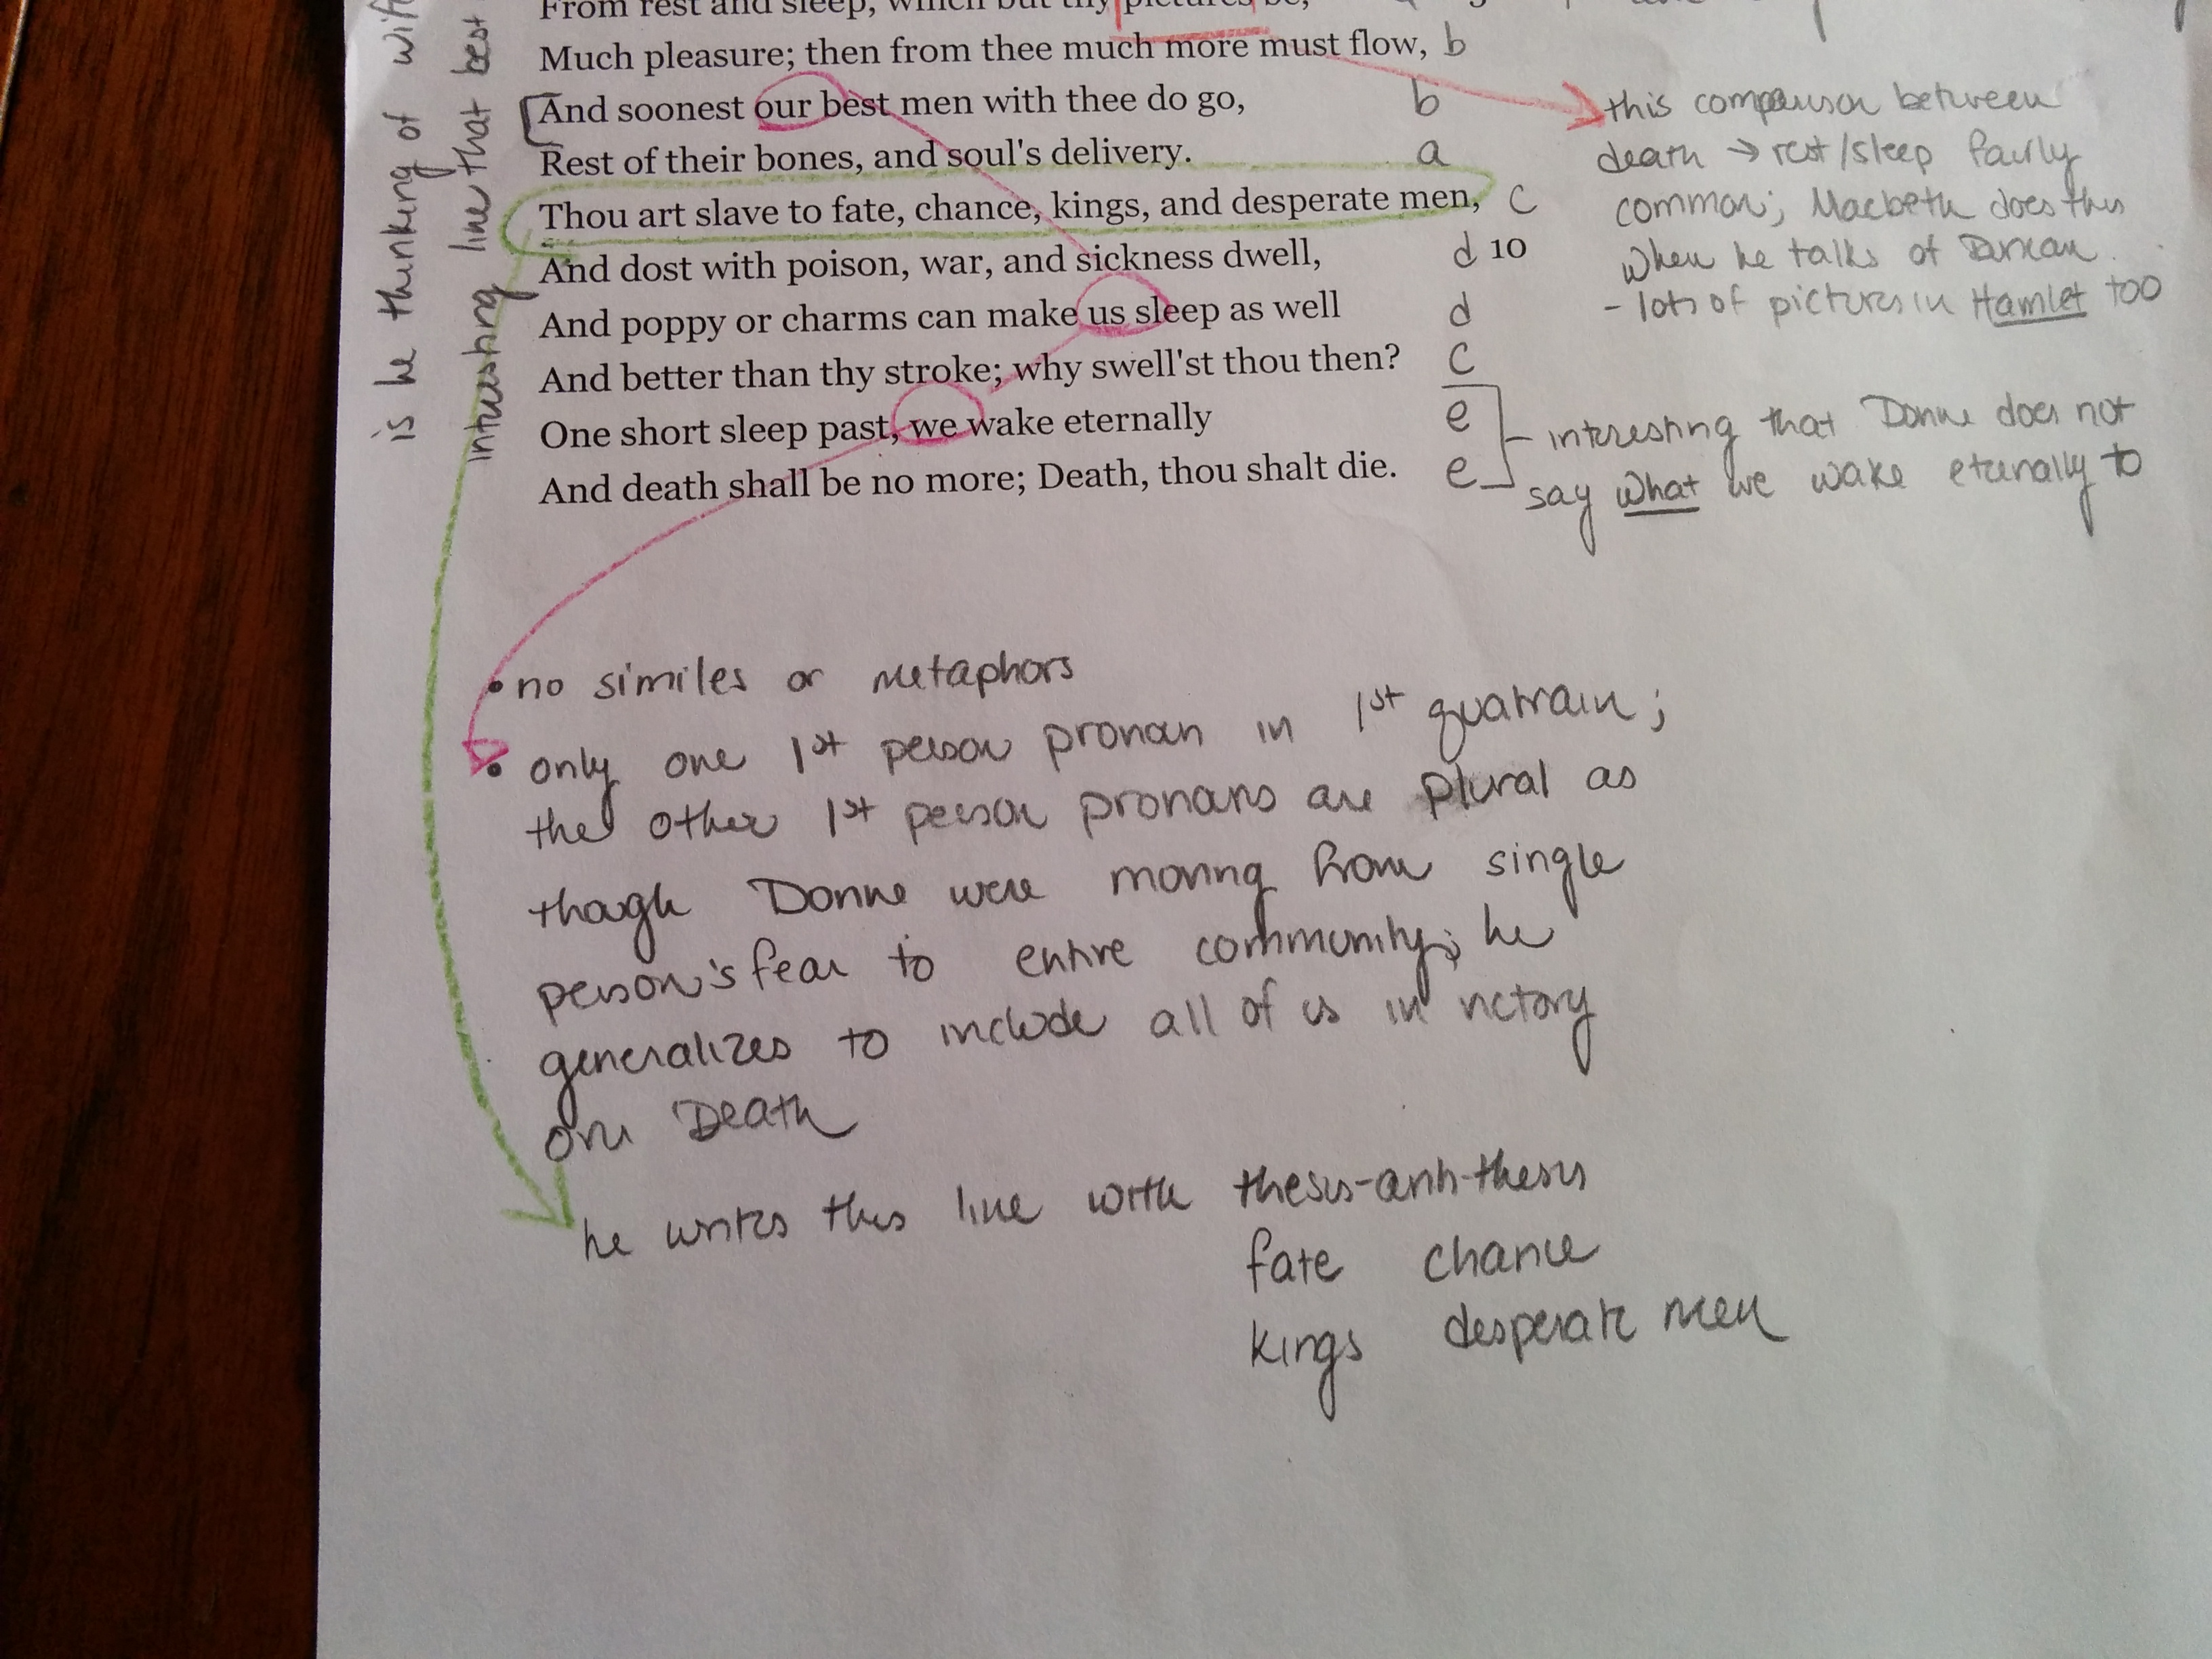 From rest and sleep, which but thy pictures be,
Much pleasure; then from thee much more must flow, b
And soonest our best men with thee do go, b
Rest of their bones, and soul's delivery. a
Thou art slave to fate, chance, kings, and desperate men, c
And dost with poison, war, and sickness dwell, d 10
And poppy or charms can make us sleep as well d
And better than thy stroke; why swell'st thou then? c
One short sleep past, we wake eternally e
And death shall be no more; Death, thou shalt die. e
this comparison between
death → rest/sleep fairly
common; Macbeth does this
when he talks of Duncan.
- lots of pictures in Hamlet too
interesting that Donne does not
say what we wake eternally to
interesting line that best
is he thinking of wife
• no similes or metaphors
• only one 1st person pronoun in 1st quatrain;
the other 1st person pronouns are plural as
though Donne were moving from single
person's fear to entire community; he
generalizes to include all of us in victory
over Death
he writes this line with thesis-anti-thesis
fate chance
kings desperate men